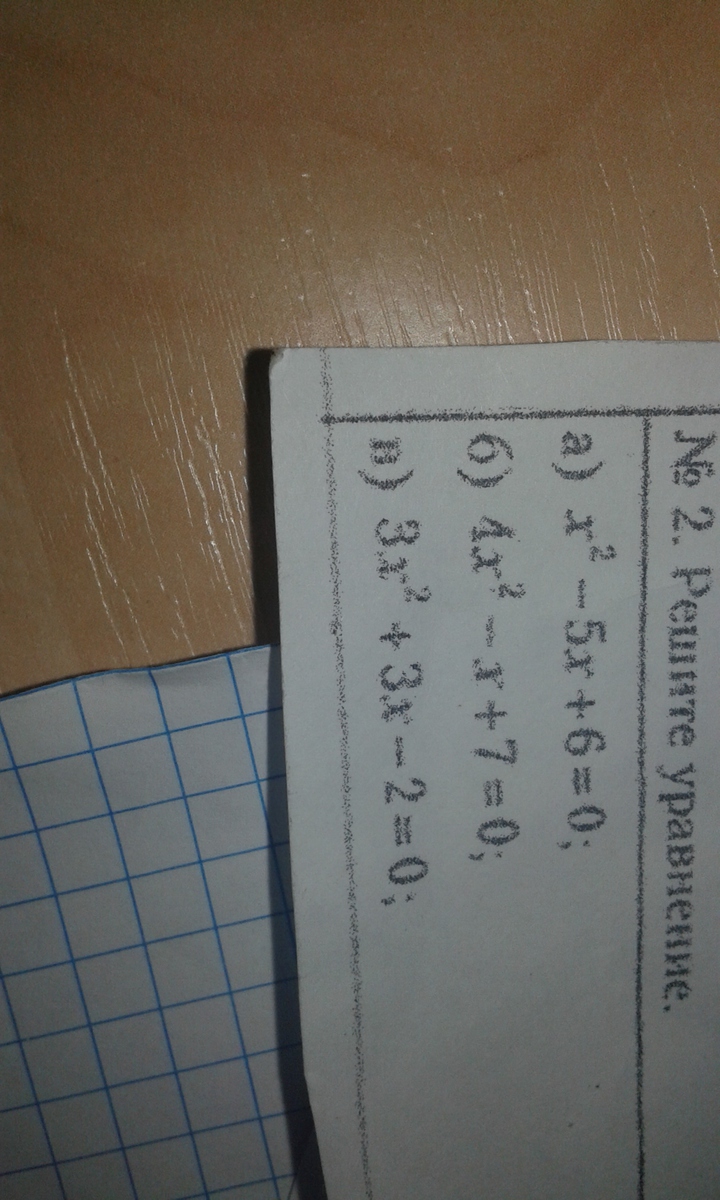 № 2. Решите уравнение.
а) x² − 5x + 6 = 0;
б) 4x² − x + 7 = 0;
в) 3x² + 3x − 2 = 0;